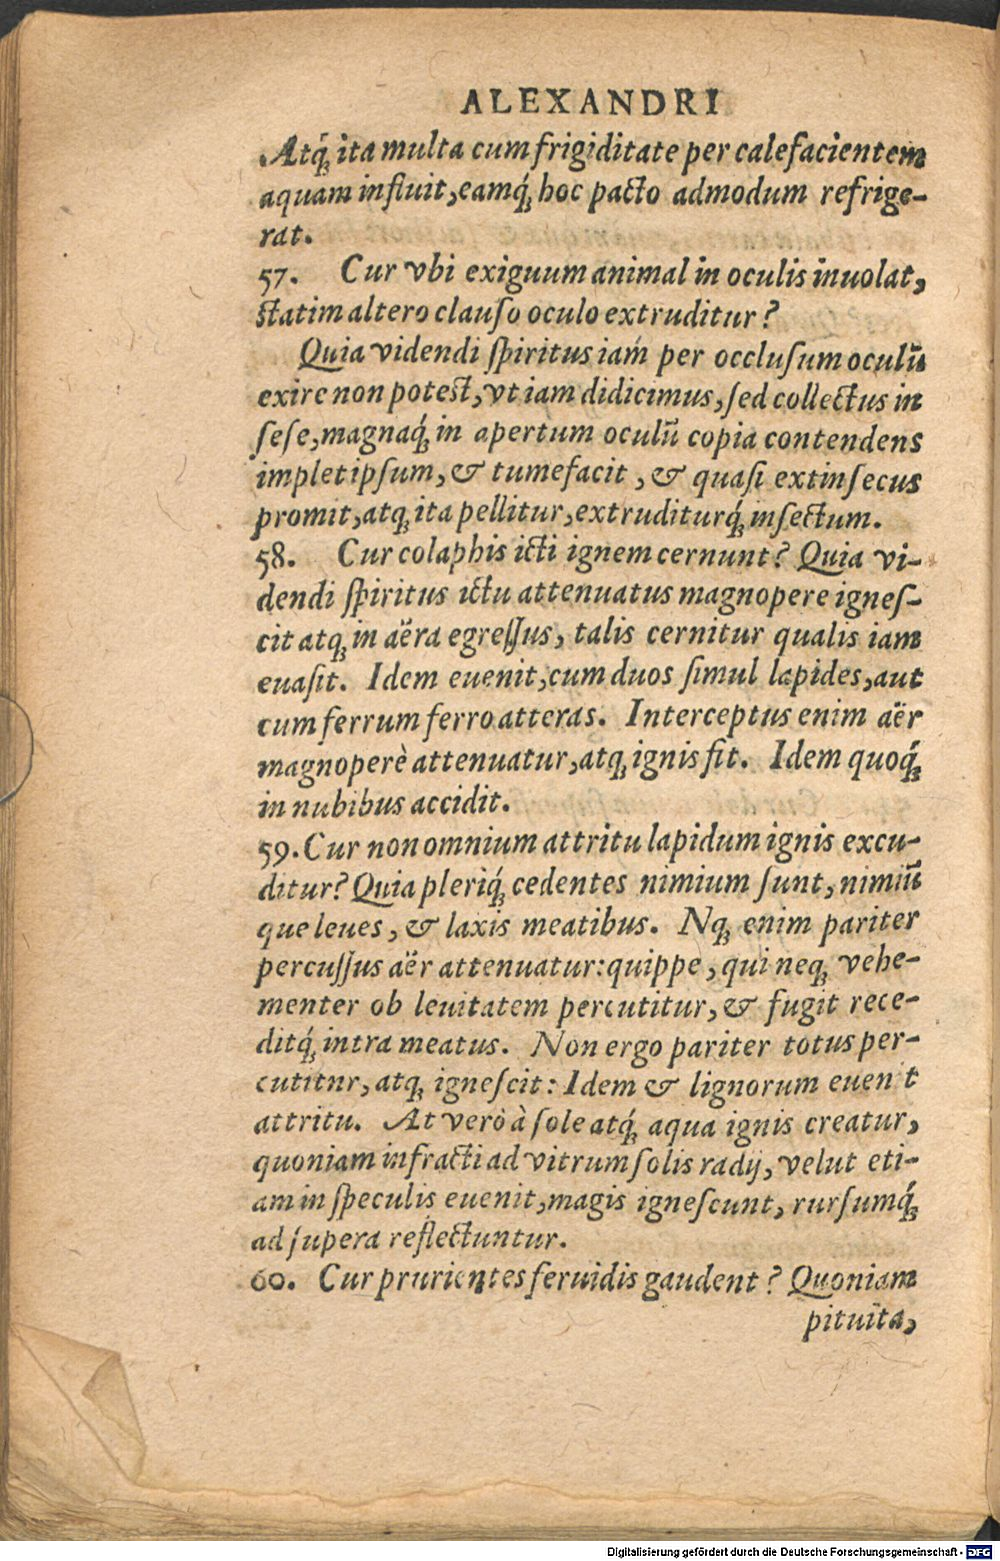 ALEXANDRI
Atq́ꝫ ita multa cum frigiditate per calefacientem
aquam influit, eamq́ꝫ hoc pacto admodum refrige-
rat.
57. Cur vbi exiguum animal in oculis inuolat,
statim altero clauſo oculo extruditur?
Quia videndi ſpiritus iaḿ per occluſum oculũ
exire non potest, vt iam didicimus, ſed collectus in
ſeſe, magnaq́ꝫ in apertum oculũ copia contendens
implet ipſum, & tumefacit, & quaſi extinſecus
promit, atqꝫ ita pellitur, extruditurq́ꝫ inſectum.
58. Cur colaphis icti ignem cernunt? Quia vi-
dendi ſpiritus ictu attenuatus magnopere igneſ-
cit atqꝫ in aëra egreſſus, talis cernitur qualis iam
euaſit. Idem euenit, cum duos ſimul lapides, aut
cum ferrum ferro atteras. Interceptus enim aër
magnoperè attenuatur, atqꝫ ignis fit. Idem quoq́ꝫ
in nubibus accidit.
59. Cur non omnium attritu lapidum ignis excu-
ditur? Quia pleriq́ꝫ cedentes nimium ſunt, nimiũ
que leues, & laxis meatibus. Nqꝫ enim pariter
percuſſus aër attenuatur: quippe, qui neqꝫ vehe-
menter ob leuitatem percutitur, & fugit rece-
ditq́ꝫ intra meatus. Non ergo pariter totus per-
cutitnr, atqꝫ igneſcit: Idem & lignorum euen t
attritu. At verò à ſole atq́ꝫ aqua ignis creatur,
quoniam infracti ad vitrum ſolis radij, velut eti-
am in ſpeculis euenit, magis igneſcunt, rurſumq́ꝫ
ad ſupera reflectuntur.
60. Cur prurientes feruidis gaudent? Quoniam
pituita,
Digitalisierung gefördert durch die Deutsche Forschungsgemeinschaft - DFG